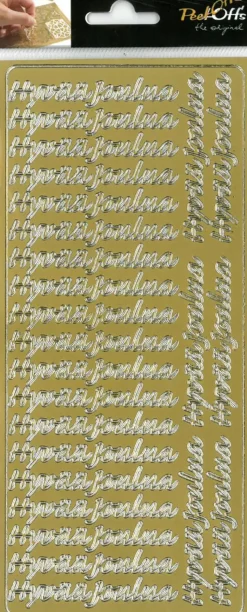 PeelOffs
the original
Hyvää joulua
Hyvää joulua
Hyvää joulua
Hyvää joulua
Hyvää joulua
Hyvää joulua
Hyvää joulua
Hyvää joulua
Hyvää joulua
Hyvää joulua
Hyvää joulua
Hyvää joulua
Hyvää joulua
Hyvää joulua
Hyvää joulua
Hyvää joulua
Hyvää joulua
Hyvää joulua
Hyvää joulua
Hyvää joulua
Hyvää joulua
Hyvää joulua
Hyvää joulua
Hyvää joulua
Hyvää joulua